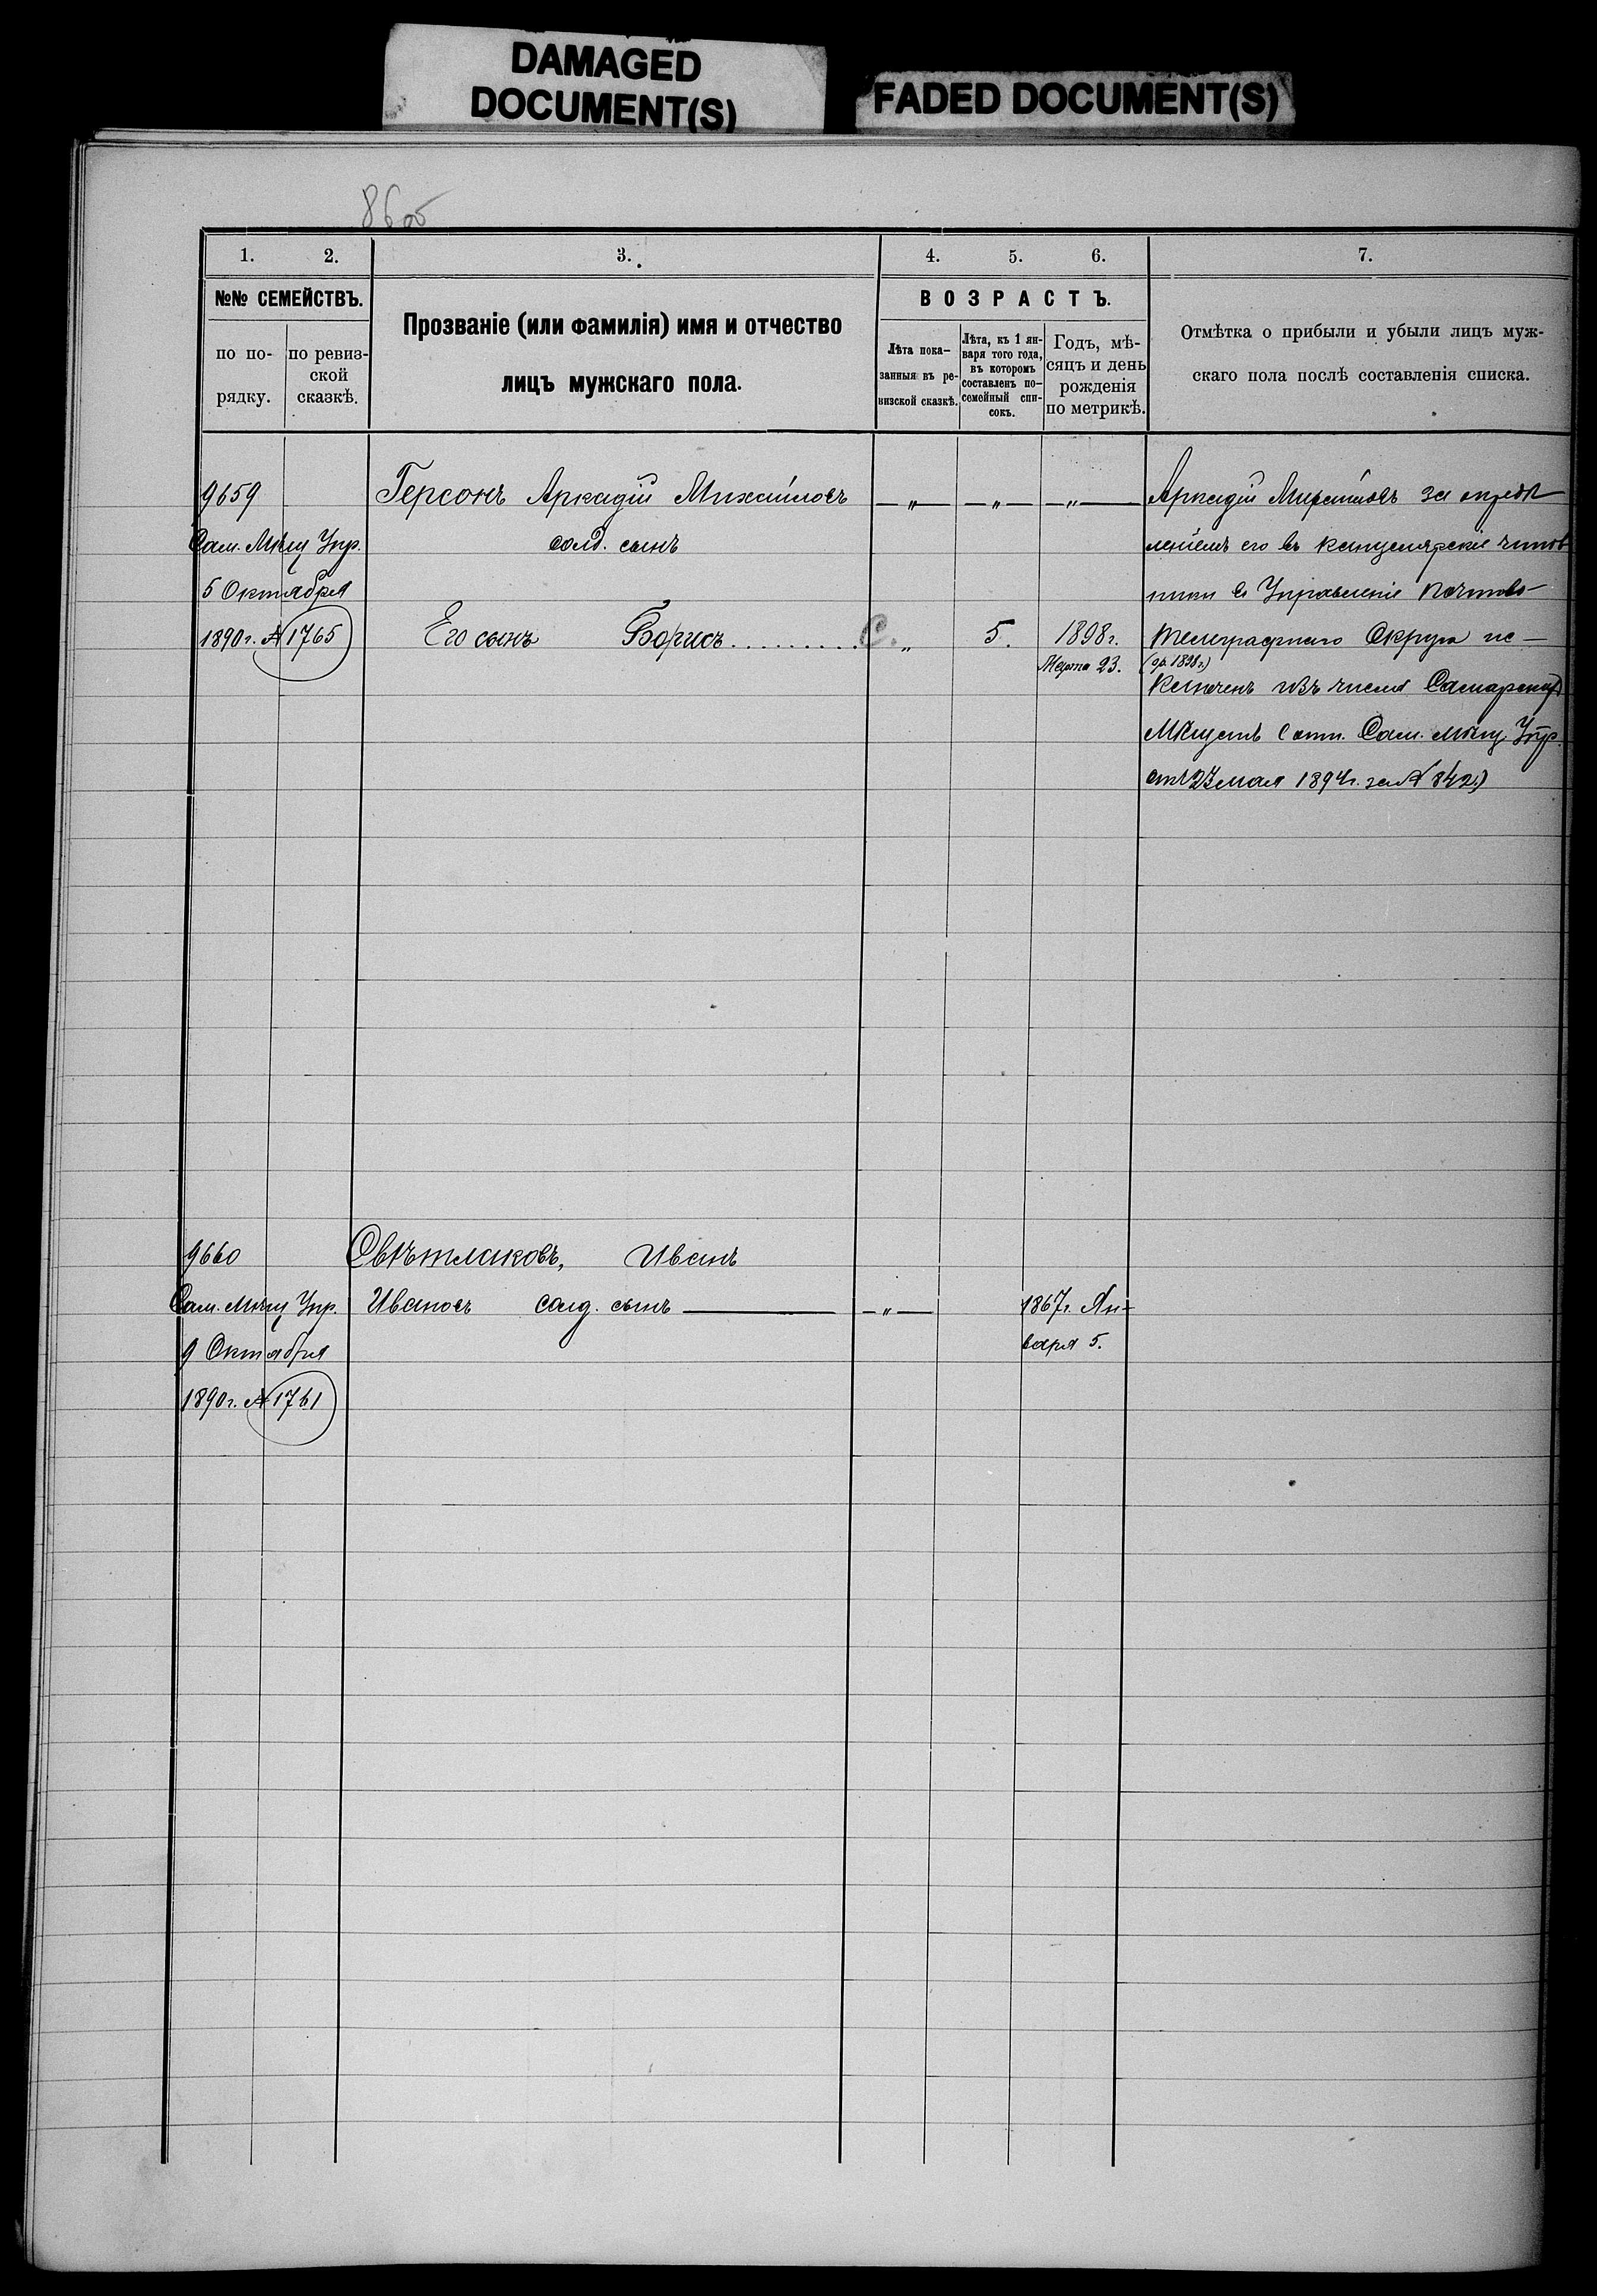 DAMAGED
DOCUMENT(S)
FADED DOCUMENT(S)
86 об
1. 2. 3. 4. 5. 6. 7.
№№ СЕМЕЙСТВЪ.
по по-
рядку.
по ревиз-
ской
сказкѣ.
Прозваніе (или фамилія) имя и отчество
лицъ мужскаго пола.
ВОЗРАСТЪ.
Лѣта пока-
занныя въ ре-
визской сказкѣ.
Лѣта, къ 1 ян-
варя того года,
въ которомъ
составленъ по-
семейный спи-
сокъ.
Годъ, мѣ-
сяцъ и день
рожденія
по метрикѣ.
Отмѣтка о прибыли и убыли лицъ муж-
скаго пола послѣ составленія списка.
9659
Сам. Мѣщ Упр.
5 Октября
1890г. № 1765
Герсонъ Аркадій Михайловъ
солд. сынъ
Его сынъ Борисъ
— „ — — „ — — „ —
„ 5. 1898г.
Марта 23.
Аркадій Михайловъ за опредѣ
леніемъ его въ канцелярскіе чинов
ники въ Управленіе Почтово-
телеграфнаго Округа ис-
ключенъ изъ числа Самарских
Мѣщанъ (отн. Сам. мѣщ. Упр.
отъ 27 мая 1894г. за № 842)
9660
Сам. Мѣщ Упр.
9 Октября
1890г. № 1761
Свѣтлаковъ, Иванъ
Ивановъ солд. сынъ —
— „ —
1867г. Ян-
варя 5.